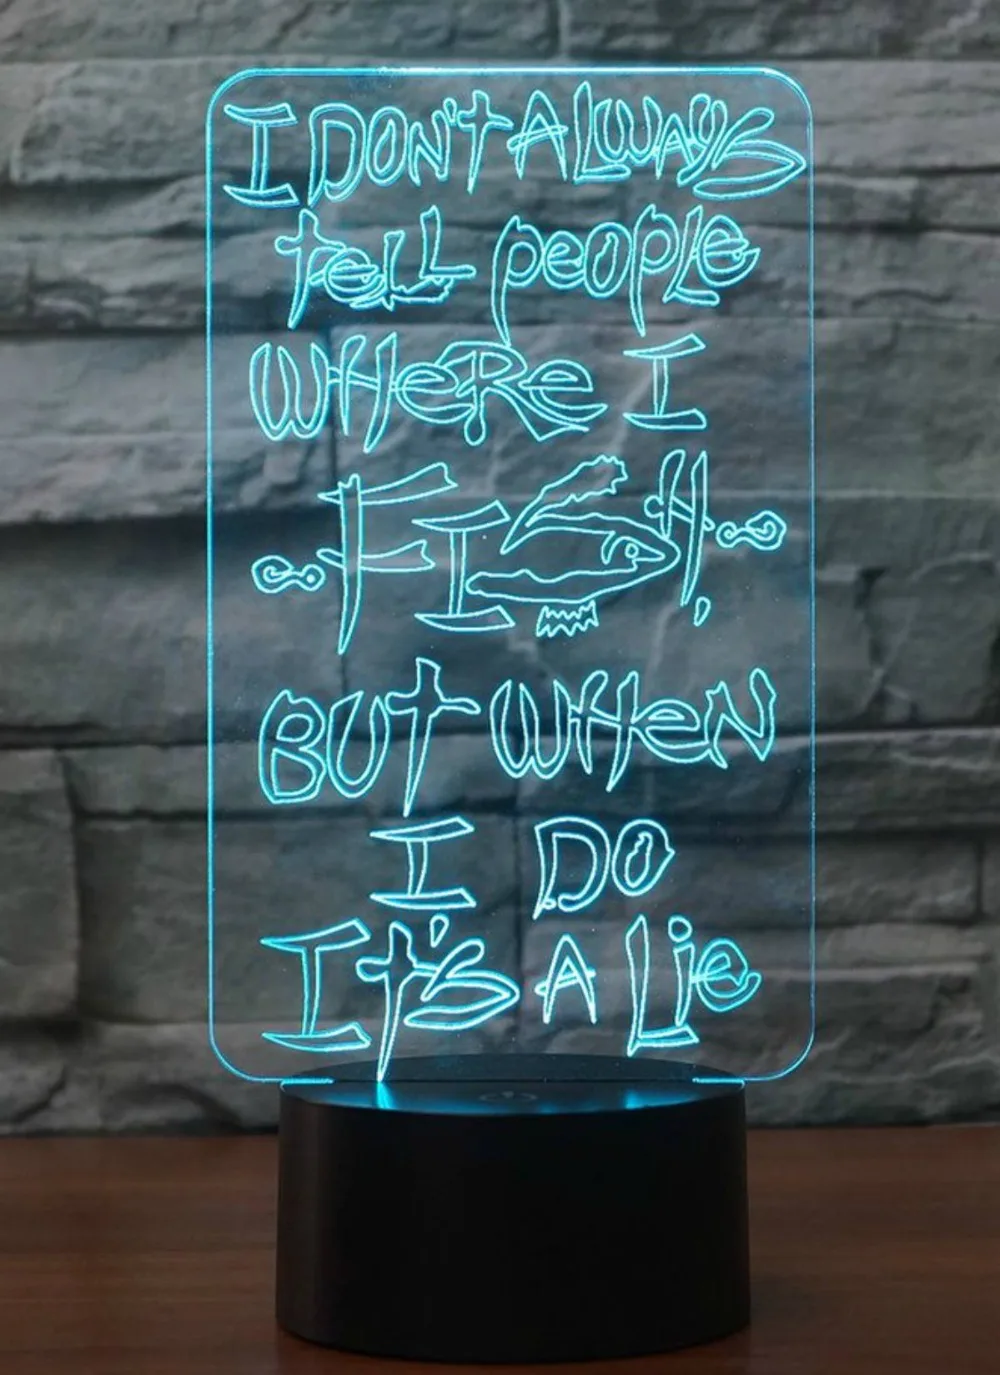 I DON'T ALWAYS
tell people
WHeRe I
FISH,
BUT WHeN
I DO
IT'S A Lie